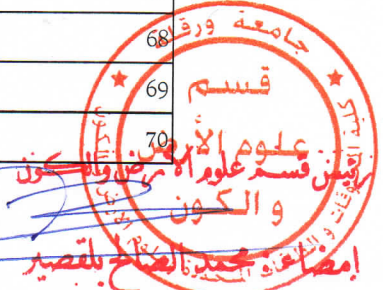 68
69
70
جامعة ورقلة
قسم
علوم الأرض
و الكون
رئيس قسم علوم الأرض والكون
إمضاء: محمد الصالح بلقصير